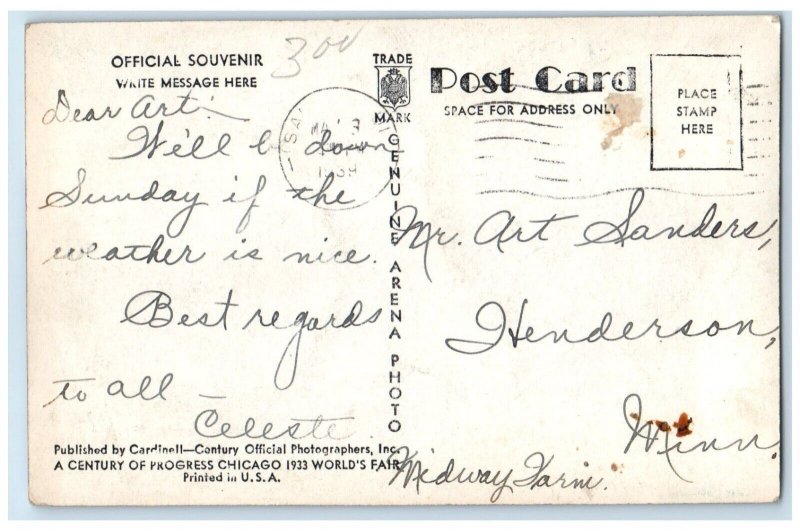 OFFICIAL SOUVENIR
WRITE MESSAGE HERE
300
Dear Art:
We'll be down
Sunday if the
weather is nice.
Best regards
to all —
Celeste.
Published by Cardinell—Century Official Photographers, Inc.
A CENTURY OF PROGRESS CHICAGO 1933 WORLD'S FAIR
Printed in U.S.A.
TRADE
MARK
GENUINE ARENA PHOTO
Post Card
SPACE FOR ADDRESS ONLY
PLACE
STAMP
HERE
Mr. Art Sanders,
Henderson,
Minn.
Midway Farm.